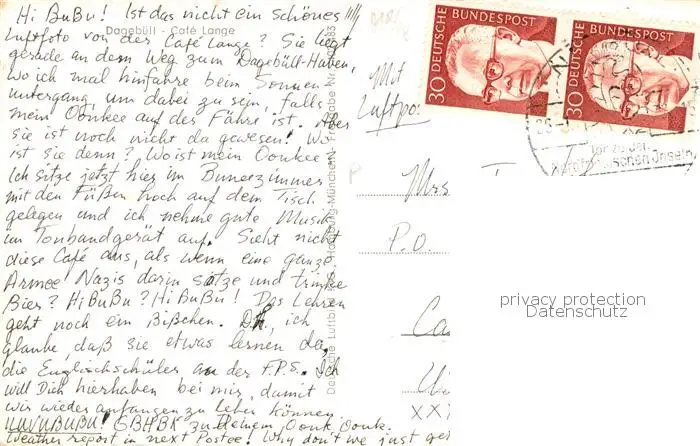 Hi BuBu! Ist das nicht ein schönes
Luftfoto von der Café Lange? Sie liegt
gerade an dem Weg zum Dagebüll-Hafen,
wo ich mal hinfahre beim Sonnen-
untergang, um dabei zu sein, falls
mein Oonkee auf des Fähre ist. Aber
sie ist noch nicht da gewesen! Wo
ist sie denn? Wo ist mein Oonkee?
Ich sitze jetzt hier im Dunerzimmer
mit den Füßen hoch auf dem Tisch
gelegen und ich nehme gute Musik
im Tonbandgerät auf. Sieht nicht
diese Café aus, als wenn eine ganze
Armee Nazis darin sitze und trinke
Bier? HiBuBu? HiBuBu! Das Lehren
geht noch ein Bißchen. D.h., ich
glaube, daß sie etwas lernen da,
die Englischschüler an der F.P.S. Ich
will Dich hierhaben bei mir, damit
wir wieder anfangen zu leben können
UUUUBUBU! GBHBK zu Deinem Oonk Oonk.
Weather report in next Postee! Why don't we just get
Dagebüll - Café Lange
Deutsche Luftbild
München
Freigabe Nr.
Mit
Luftpo
Mrs
P.O.
Ca
XX
30 DEUTSCHE BUNDESPOST
30 DEUTSCHE BUNDESPOST
schen Inseln
privacy protection
Datenschutz